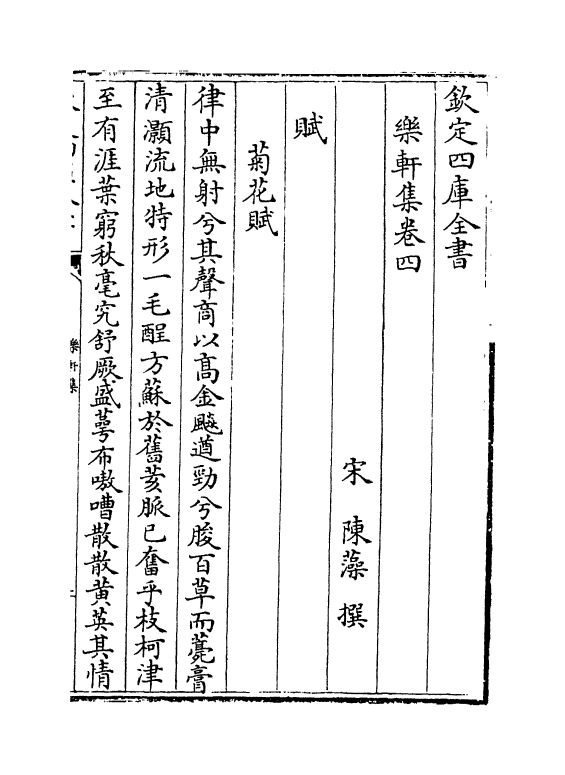 欽定四庫全書
樂軒集卷四
宋 陳藻 撰
賦
菊花賦
律中無射兮其聲商以髙金飈遒勁兮朘百草而薧膏
清灝流地特形一毛酲方蘇於舊荄脈已奮乎枝柯津
至有涯葉窮秋毫究舒厥盛蕚布嗷嘈散散黄英其情
樂軒集